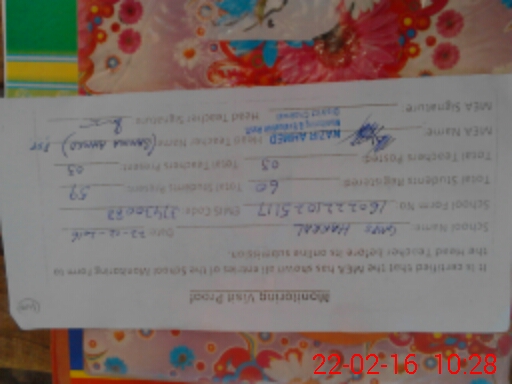 Monitoring Visit Proof
It is certified that the MEA has shown all entries of the School Monitoring to form
the Head Teacher before its online submission.
School Name: HAKRAL Date: 22-02-2016
School Form No. EMIS Code:
Total Students Registered: 60 Total Students Present: 59
Total Teachers Posted: 03 Total Teachers Present: 03
MEA Name: NAZIR AHMED Head Teacher Name AHMED) PST
Monitoring & Evaluation
District
MEA Signature: Head Teacher Signature
22-02-16 10:28